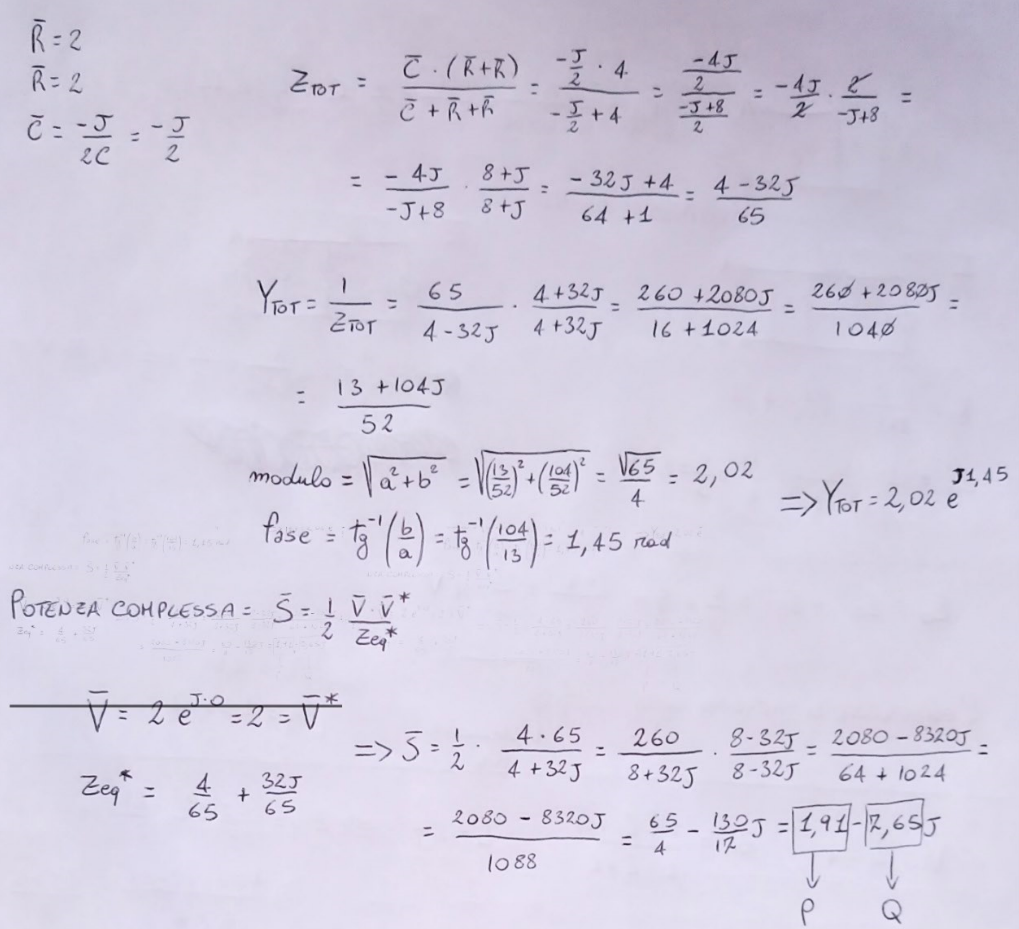 R̄ = 2
R̄ = 2
C̄ = -J/2C = -J/2
Z_TOT = C̄ · (R̄+R̄) / C̄ + R̄ + R̄ = -J/2 · 4 / -J/2 + 4 = -4J/2 / -J+8/2 = -4J/2 · 2/-J+8 =
= -4J/-J+8 · 8+J/8+J = -32J+4/64+1 = 4-32J/65
Y_TOT = 1/Z_TOT = 65/4-32J · 4+32J/4+32J = 260+2080J/16+1024 = 260+2080J/1040 =
= 13+104J/52
modulo = √a²+b² = √(13/52)²+(104/52)² = √65/4 = 2,02
fase = tg⁻¹(b/a) = tg⁻¹(104/13) = 1,45 rad
=> Y_TOT = 2,02 e^J1,45
POTENZA COMPLESSA = S̄ = 1/2 V̄·V̄*/Zeq*
V̄ = 2 e^J·0 = 2 = V̄*
Zeq* = 4/65 + 32J/65
=> S̄ = 1/2 · 4·65/4+32J = 260/8+32J · 8-32J/8-32J = 2080-8320J/64+1024 =
= 2080-8320J/1088 = 65/4 - 130/17 J = 1,91 - 7,65 J
P Q